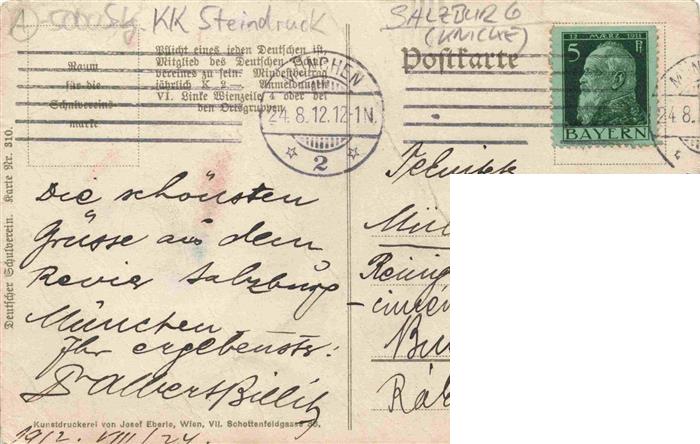 KK Steindruck
SALZBURG
(KNICKE)
Raum
für die
Schulvereins
marke
Pflicht eines jeden Deutschen ist,
Mitglied des Deutschen Schul
vereines zu sein. Mindestbeitrag
jährlich K 2.—. Anmeldungen
VI. Linke Wienzeile 4 oder bei
den Ortsgruppen.
Postkarte
12. MÄRZ 1911
5 Pf
BAYERN
MÜNCHEN
24.8.12.12-1N.
2
24 8.
Deutscher Schulverein. Karte Nr. 310.
Die schönsten
Grüsse aus dem
Revier Salzburg
München
Ihr ergebenster:
Dr Albert Billitz
1912. VIII/24.
Kunstdruckerei von Josef Eberle, Wien, VII. Schottenfeldgasse